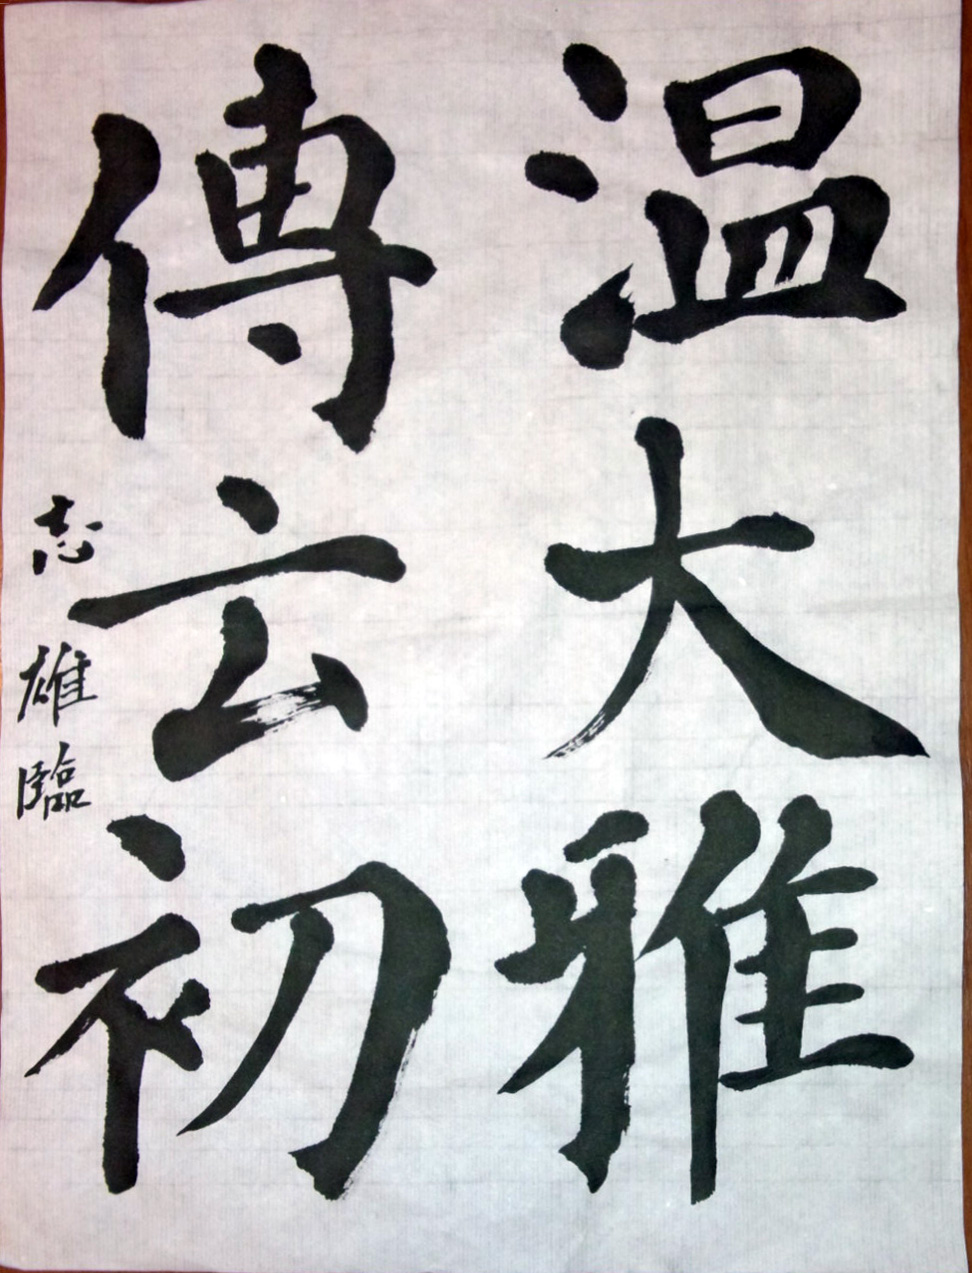 温大雅
傳云初
志雄臨